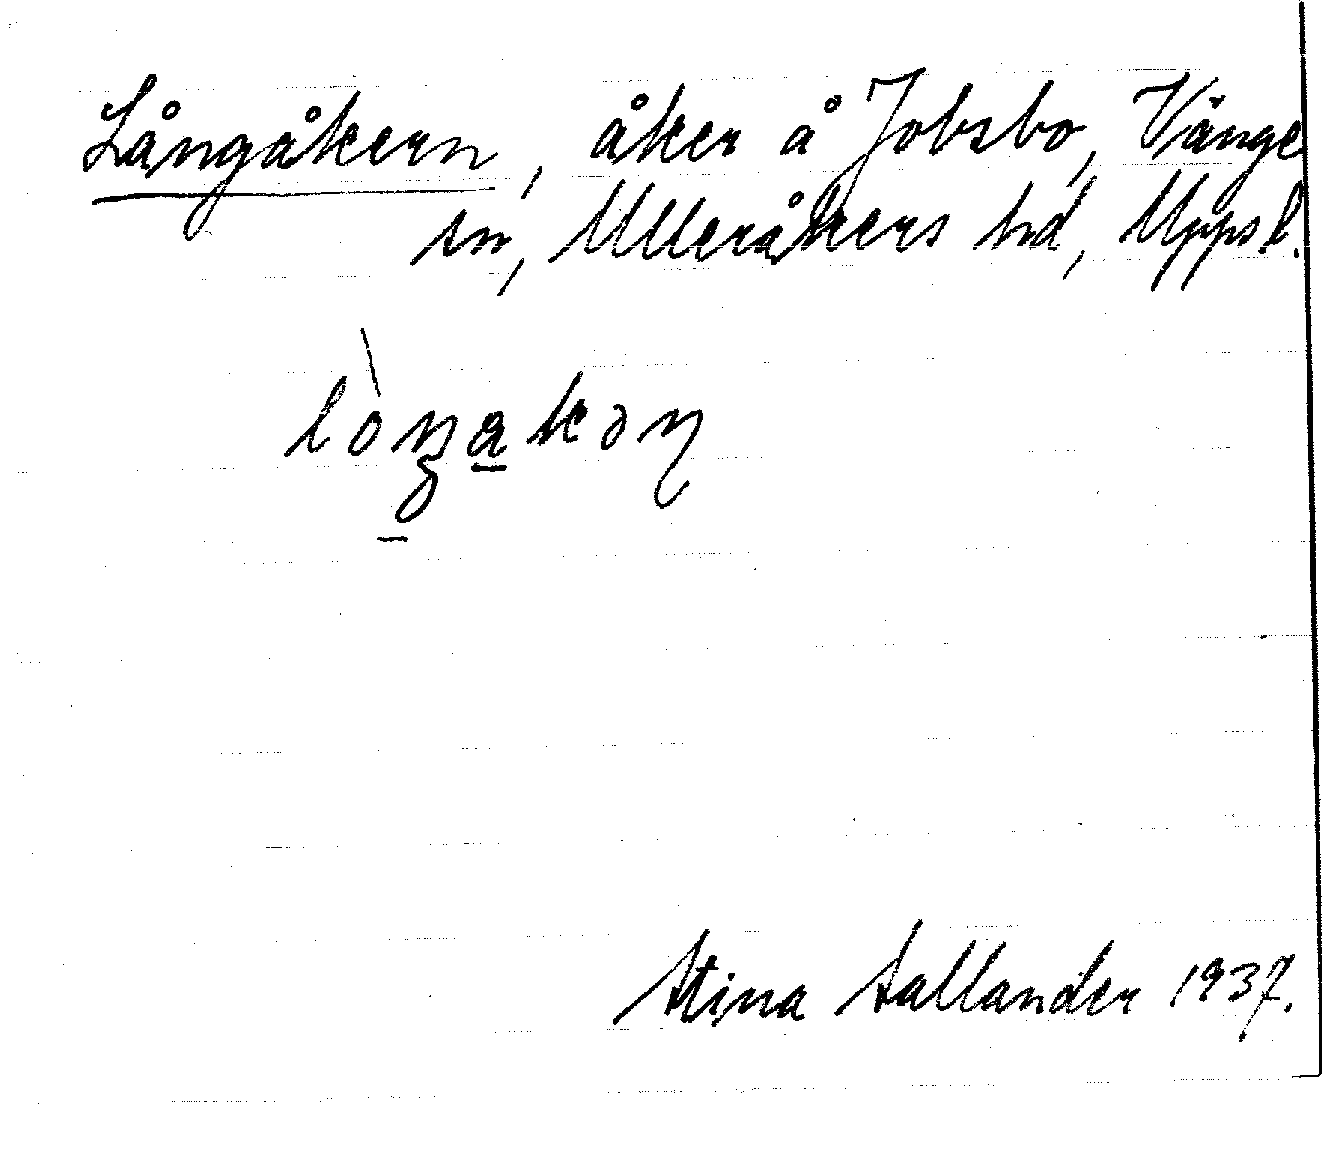 Långåkern, åker å Jobsbo, Vänge
sn, Ulleråkers hd, Uppsl.
lòŋakəɳ
Stina Sallander 1937.